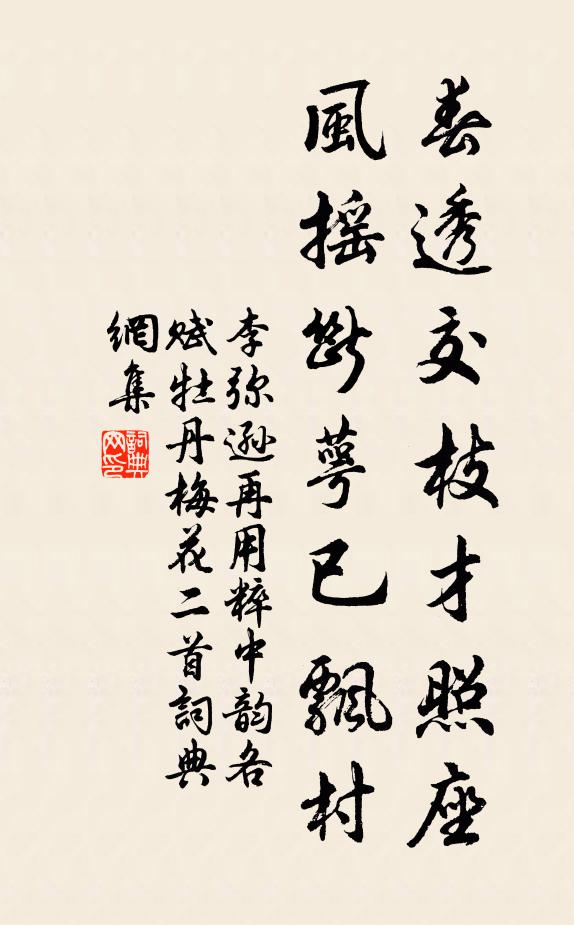 春透交枝才照座
風摇斷萼已飄村
李弥遜再用粹中韵各
赋牡丹梅花二首詞典
網集
詞典网印